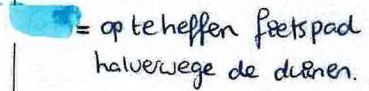 = op te heffen fietspad
halverwege de duinen.